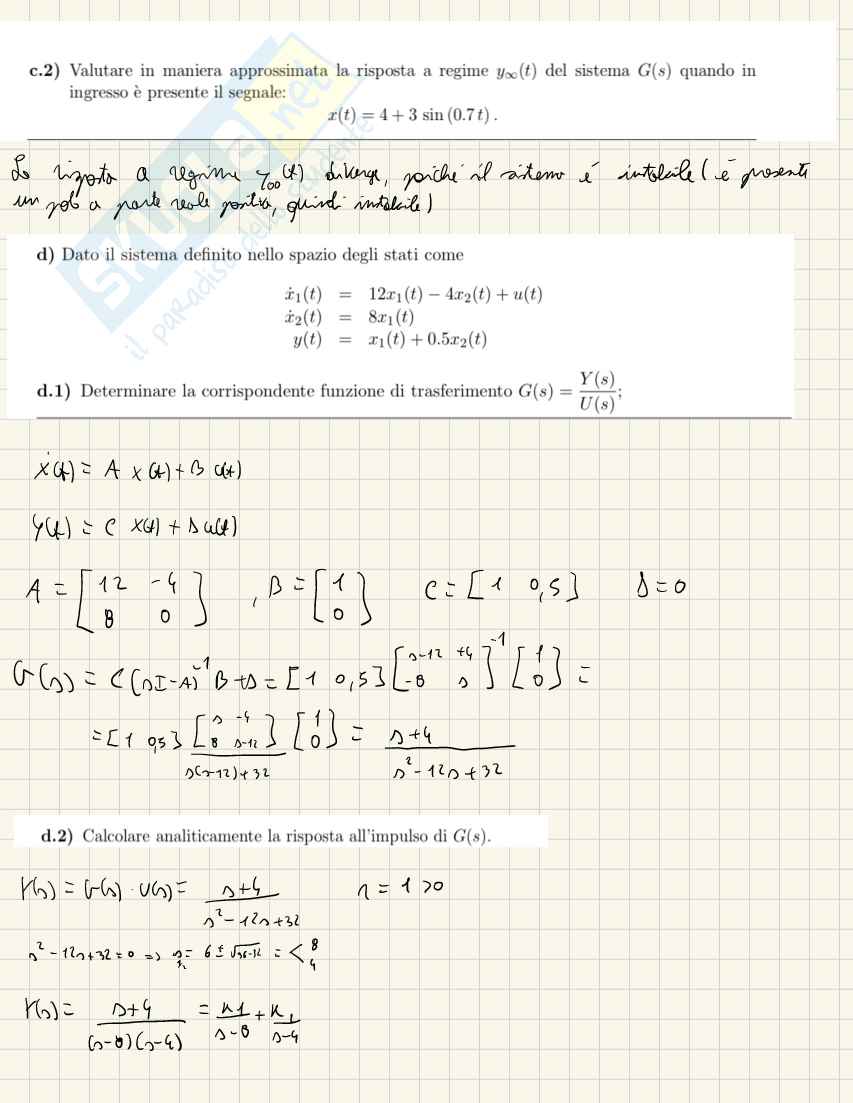 c.2) Valutare in maniera approssimata la risposta a regime y∞(t) del sistema G(s) quando in
ingresso è presente il segnale:
x(t) = 4 + 3 sin (0.7 t) .
La risposta a regime y∞(t) diverge, poiché il sistema è instabile (è presente
un polo a parte reale positiva, quindi instabile)
d) Dato il sistema definito nello spazio degli stati come
ẋ1(t) = 12x1(t) − 4x2(t) + u(t)
ẋ2(t) = 8x1(t)
y(t) = x1(t) + 0.5x2(t)
d.1) Determinare la corrispondente funzione di trasferimento G(s) = Y(s)/U(s);
ẋ(t) = A x(t) + B u(t)
y(t) = C x(t) + D u(t)
A = [12 -4; 8 0] , B = [1; 0] C = [1 0,5] D = 0
G(s) = C(sI-A)^-1 B + D = [1 0,5] [s-12 +4; -8 s]^-1 [1; 0] =
= [1 0,5] [s -4; 8 s-12]/(s(s-12)+32) [1; 0] = (s+4)/(s²-12s+32)
d.2) Calcolare analiticamente la risposta all'impulso di G(s).
Y(s) = G(s) · U(s) = (s+4)/(s²-12s+32) r = 1 > 0
s²-12s+32=0 => = 6 ± √36-32 = < 8 4
Y(s) = (s+4)/((s-8)(s-4)) = K1/(s-8) + /(s-4)
SKUOLA.net
il paradiso dello studente